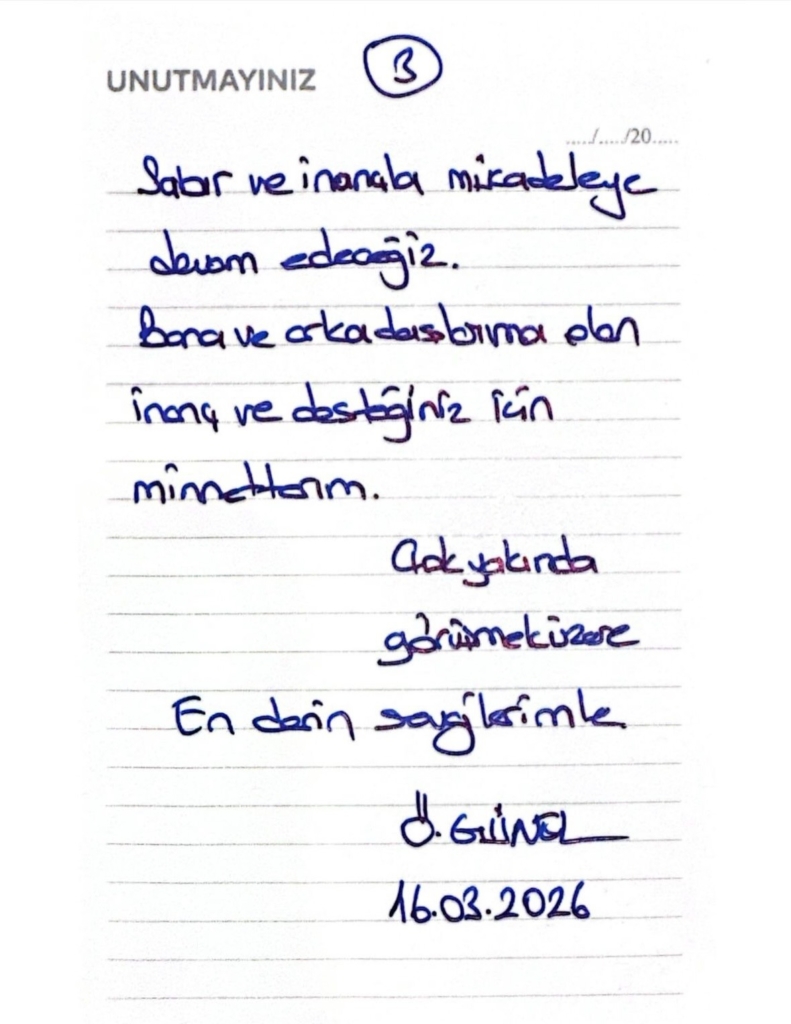 UNUTMAYINIZ
3
..../..../20.....
Sabır ve inançla mücadeleye
devam edeceğiz.
Bana ve arkadaşlarıma olan
inanç ve desteğiniz için
minnettarım.
Çok yakında
görüşmek üzere
En derin sevgilerimle
Ö. GÜNEL
16.03.2026